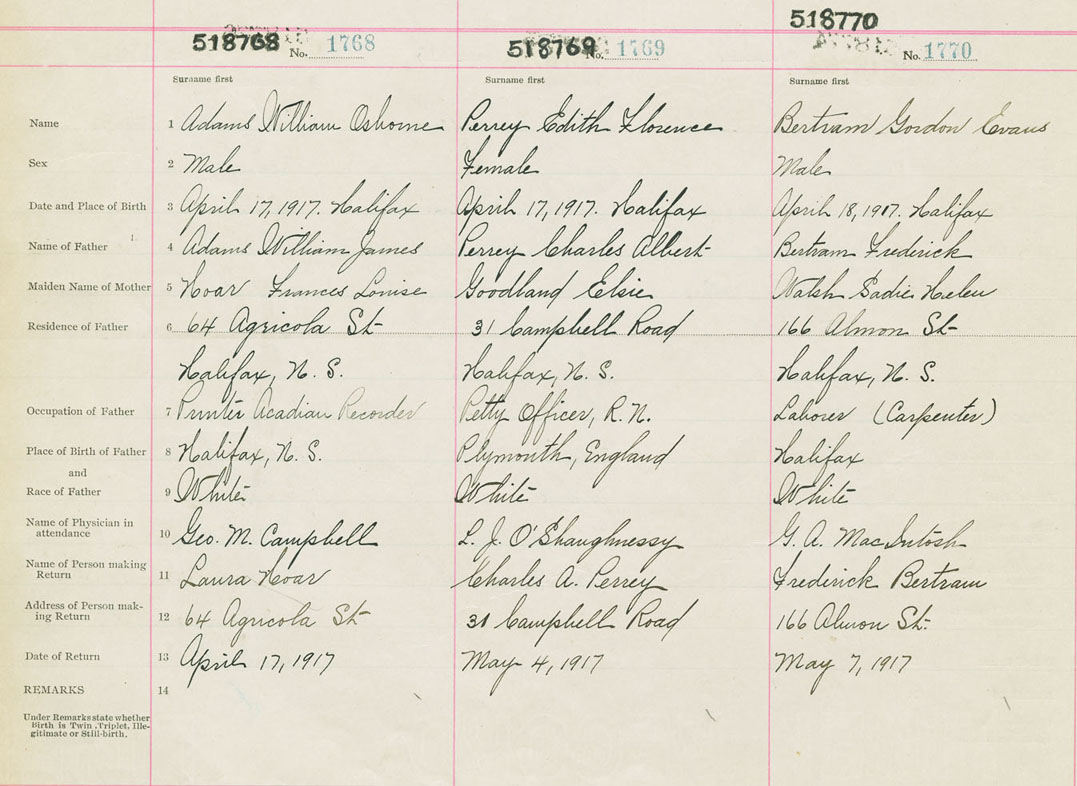 518768 No. 1768 518769 No. 1769 518770 No. 1770
Surname first Surname first Surname first
Name 1 Adams William Osborne Perrey Edith Florence Bertram Gordon Evans
Sex 2 Male Female Male
Date and Place of Birth 3 April 17, 1917. Halifax April 17, 1917. Halifax April 18, 1917. Halifax
Name of Father 4 Adams William James Perrey Charles Albert Bertram Frederick
Maiden Name of Mother 5 Hoar Frances Louise Goodland Elsie Walsh Sadie Helen
Residence of Father 6 64 Agricola St 31 Campbell Road 166 Almon St
Halifax, N. S. Halifax, N. S. Halifax, N. S.
Occupation of Father 7 Printer Acadian Recorder Petty Officer, R. N. Laborer (Carpenter)
Place of Birth of Father 8 Halifax, N. S. Plymouth, England Halifax
and
Race of Father 9 White White White
Name of Physician in
attendance 10 Geo. M. Campbell L. J. O'Shaughnessy G. A. MacIntosh
Name of Person making
Return 11 Laura Hoar Charles A. Perrey Frederick Bertram
Address of Person mak-
ing Return 12 64 Agricola St 31 Campbell Road 166 Almon St.
Date of Return 13 April 17, 1917 May 4, 1917 May 7, 1917
REMARKS 14
Under Remarks state whether
Birth is Twin, Triplet, Ille-
gitimate or Still-birth.